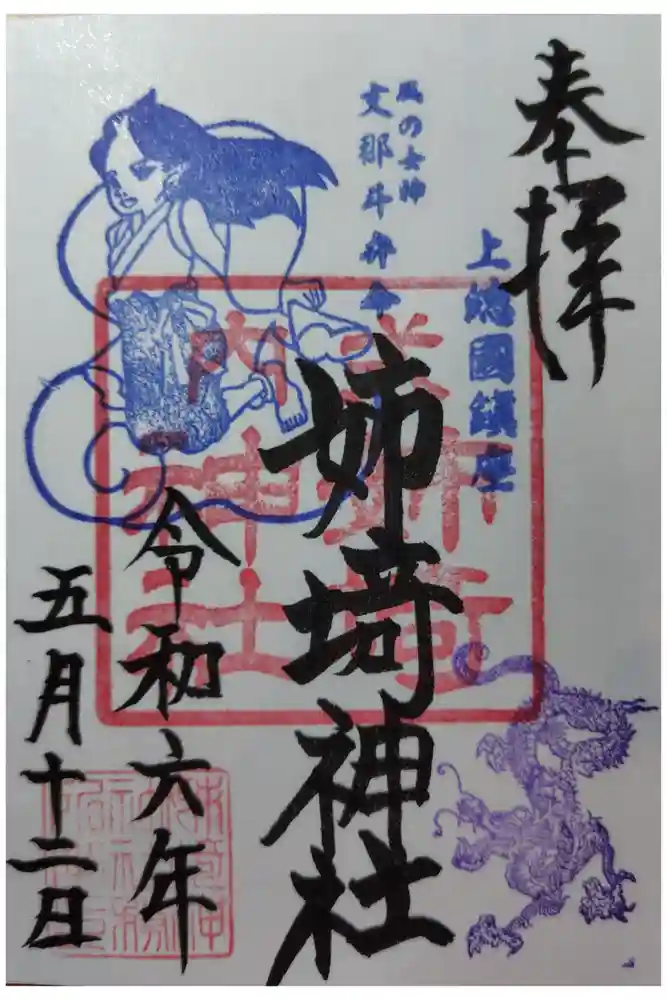 奉拝
上総國鎮座
風の女神
支那斗弁命
姉埼神社
令和六年
五月十二日